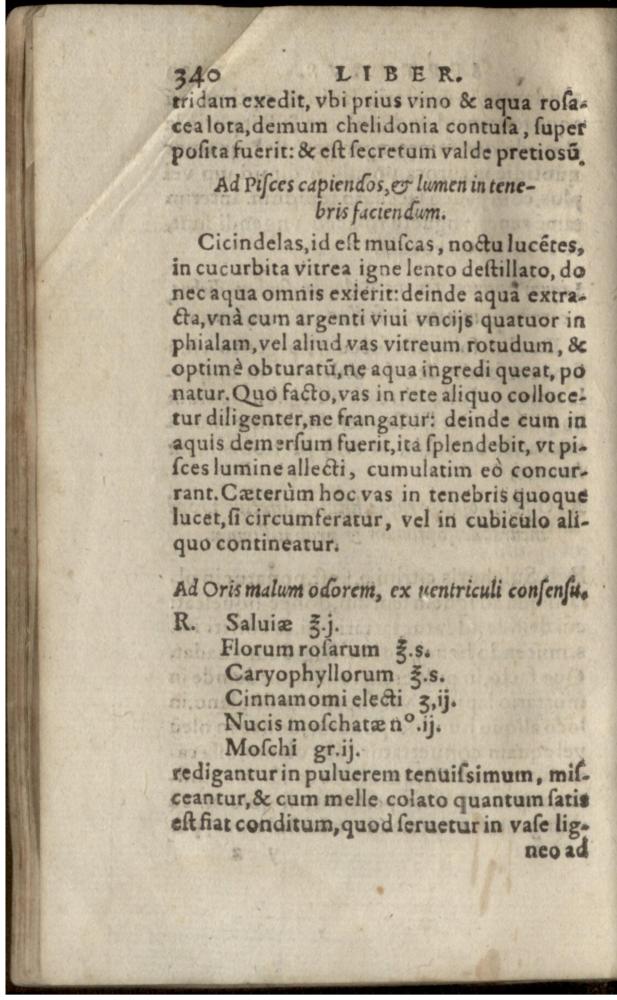 340 LIBER.
tridam exedit, vbi prius vino & aqua rosa-
cea lota, demum chelidonia contusa, super
posita fuerit: & est secretum valde pretiosū.
Ad Pisces capiendos, & lumen in tene-
bris faciendum.
Cicindelas, id est muscas, noctu lucētes,
in cucurbita vitrea igne lento destillato, do
nec aqua omnis exierit: deinde aquā extra-
cta, vnà cum argenti viui vncijs quatuor in
phialam, vel aliud vas vitreum rotudum, &
optimè obturatū, ne aqua ingredi queat, po
natur. Quo facto, vas in rete aliquo colloce-
tur diligenter, ne frangatur: deinde cum in
aquis demersum fuerit, ita splendebit, vt pi-
sces lumine allecti, cumulatim eò concur-
rant. Cæterùm hoc vas in tenebris quoque
lucet, si circumferatur, vel in cubiculo ali-
quo contineatur.
Ad Oris malum odorem, ex uentriculi consensu.
R. Saluiæ ℥.j.
Florum rosarum ℥.s.
Caryophyllorum ℥.s.
Cinnamomi electi ʒ,ij.
Nucis moschatæ nº.ij.
Moschi gr.ij.
redigantur in puluerem tenuissimum, mis-
ceantur, & cum melle colato quantum satis
est fiat conditum, quod seruetur in vase lig-
neo ad